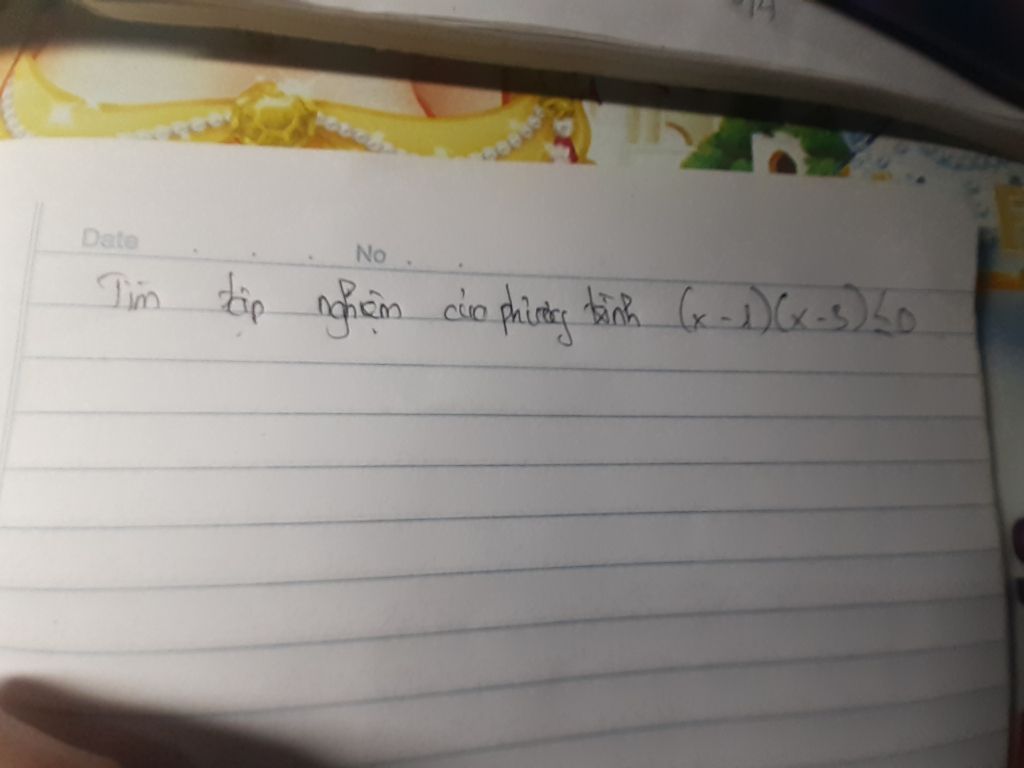 Date . . . No . .
Tìm tập nghiệm của phương trình (x - 1)(x - 3) ≤ 0